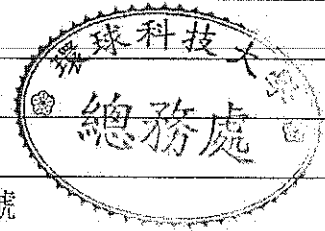 環球科技大學
總務處
號